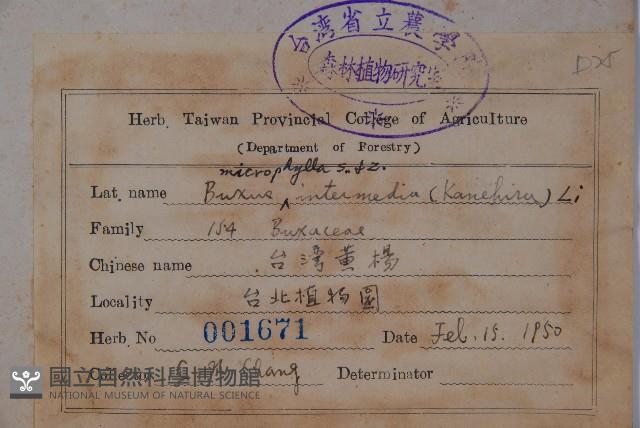 台灣省立農學院
森林植物研究室
D25
Herb. Taiwan Provincial College of Agriculture
(Department of Forestry)
microphylla S. & Z.
Lat. name Buxus intermedia (Kanehira) Li
Family 154 Buxaceae
Chinese name 台灣黃楊
Locality 台北植物園
Herb. No 001671 Date Feb. 15. 1950
Collector Chang Determinator
國立自然科學博物館
NATIONAL MUSEUM OF NATURAL SCIENCE